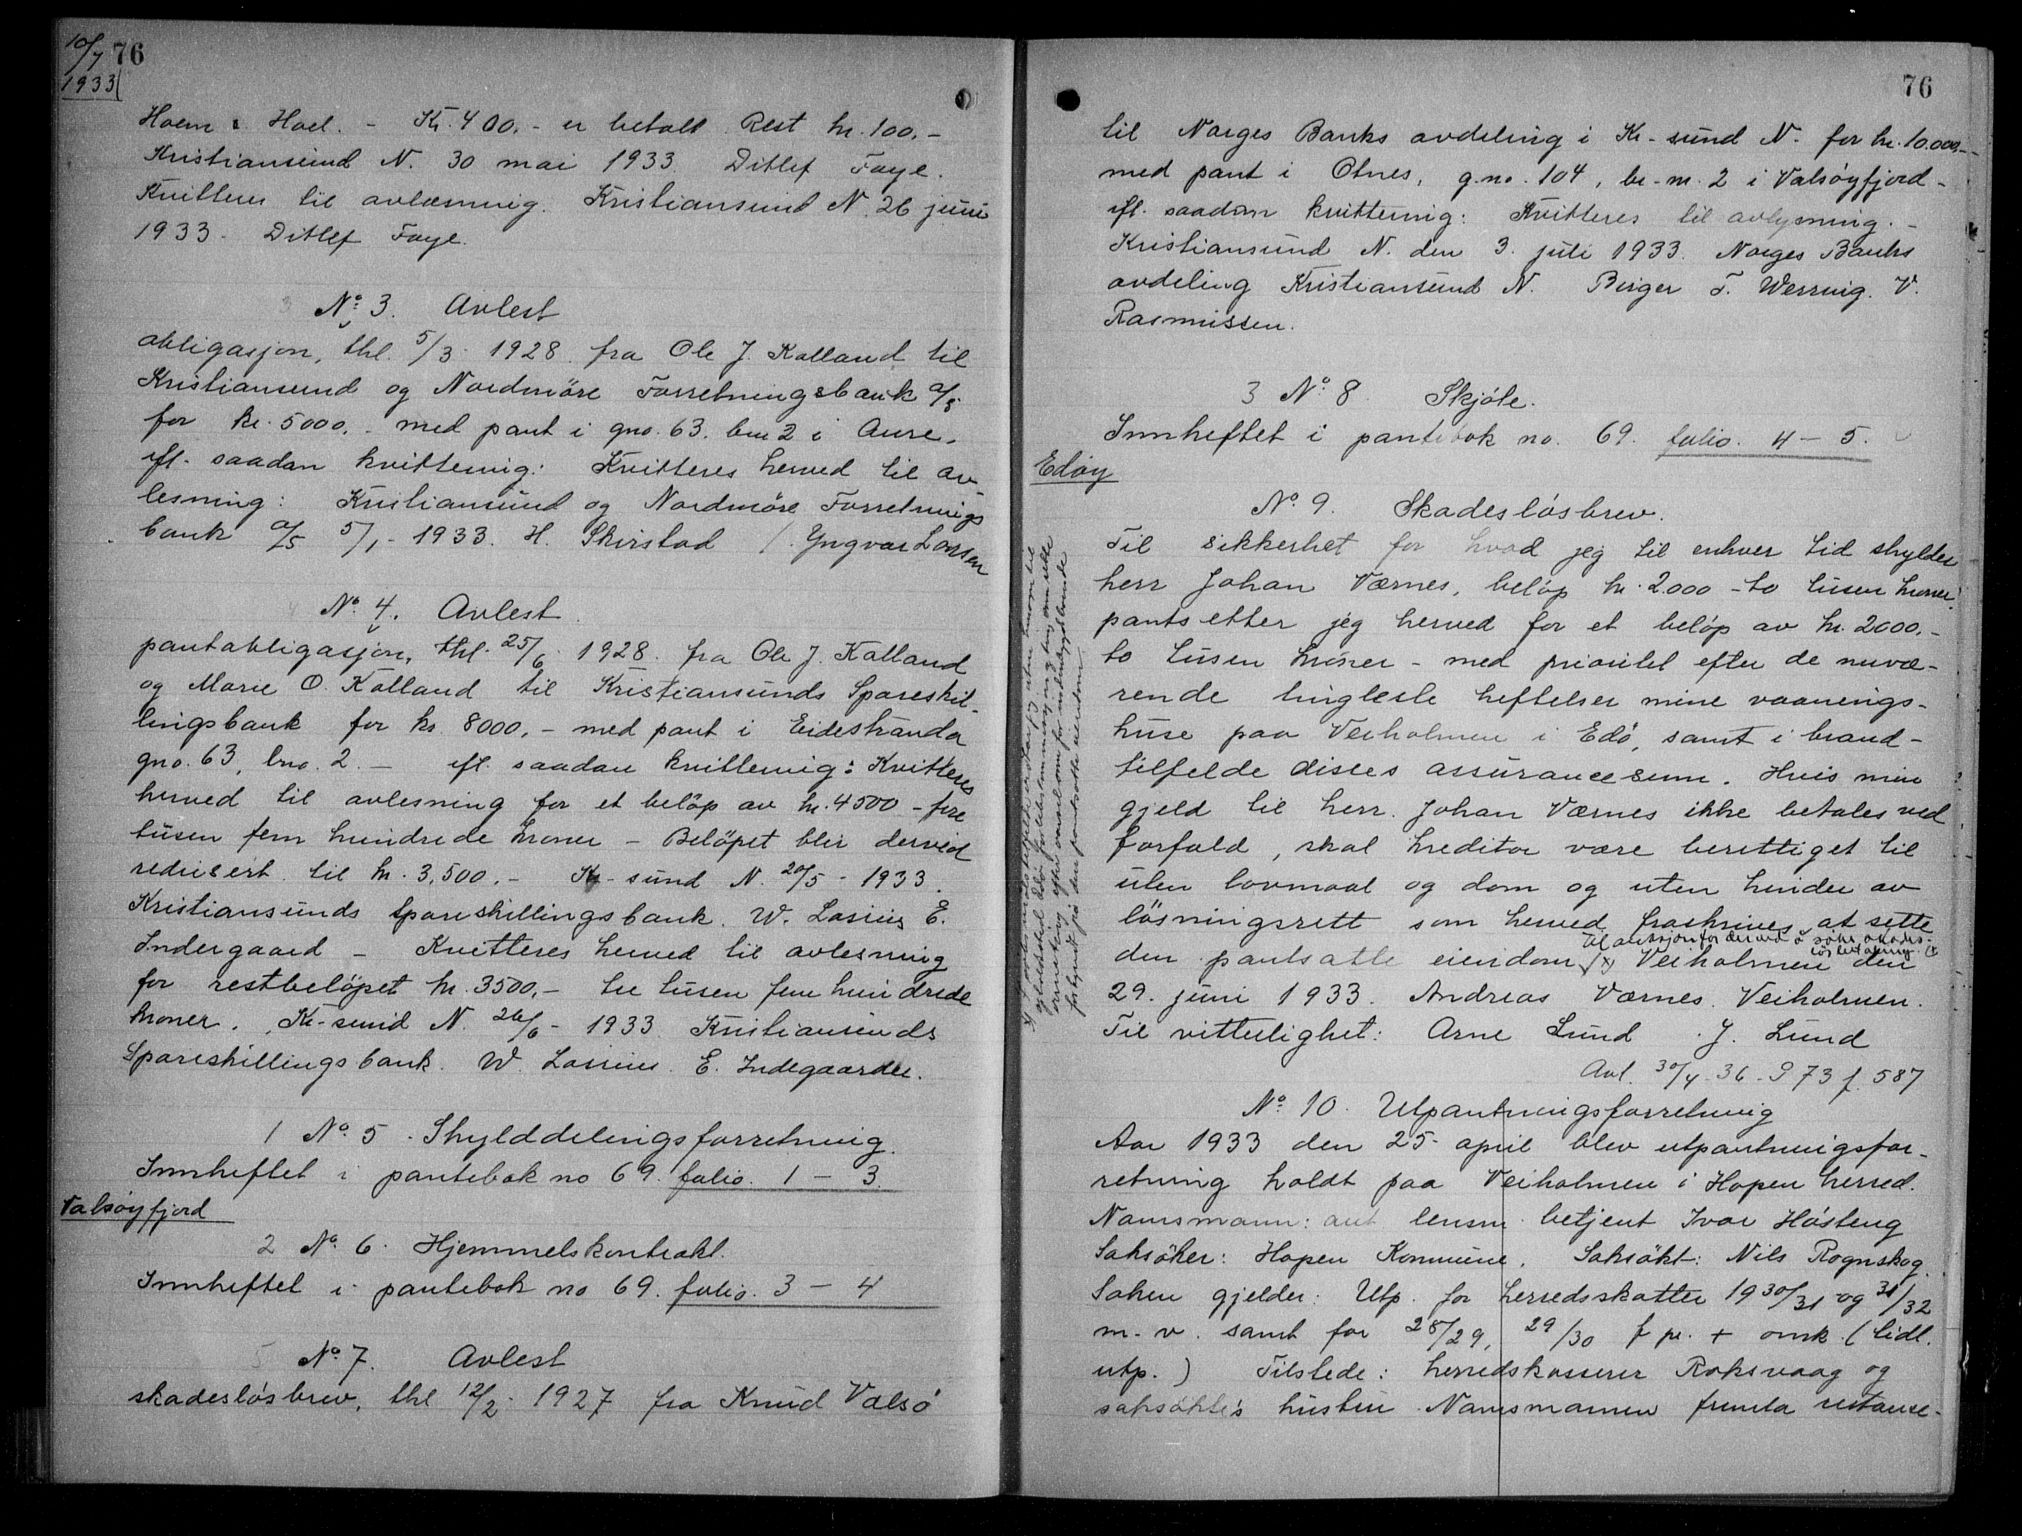 10/7 76
1933
Hoem & Hoel. - Kr. 400.- er betalt. Rest kr. 100.-
Kristiansund N. 30 mai 1933. Ditlef Faye.
Kvitteres til avlæsning. Kristiansund N. 26 juni
1933. Ditlef Faye.
No 3. Avlest
obligasjon, thl. 5/3 1928 fra Ole J. Kalland til
Kristiansund og Nordmöre Forretningsbank A/S
for kr. 5000.- med pant i gno. 63. bno 2 i Aure.
ifl. saadan kvittering: Kvitteres herved til av-
lesning: Kristiansund og Nordmöre Forretnings
bank A/S 5/1 - 1933. H. Skirstad /. Yngvar Larsen
No 4. Avlest
pantobligasjon, thl. 25/6 1928. fra Ole J. Kalland
og Marie O. Kalland til Kristiansunds Spareskil-
lingsbank for kr. 8000.- med pant i Eidestranda
gno. 63, bno. 2. - ifl. saadan kvittering: Kvitteres
herved til avlesning for et beløp av kr. 4500 - fire
tusen fem hundrede kroner - Beløpet blir derved
redusert til kr. 3,500.- Kr-sund N. 20/5 - 1933.
Kristiansunds Spareskillingsbank. W. Lasius E.
Indergaard - Kvitteres herved til avlesning
for restbeløpet kr. 3500.- tre tusen fem hundrede
kroner. Kr-sund N. 26/6 - 1933 Kristiansunds
Spareskillingsbank. W. Lasius. E. Indegaarder.
1 No 5. Skylddelingsforretning.
Innheftet i pantebok no 69. folio. 1 - 3.
Valsøyfjord
2 No 6. Hjemmelskontrakt.
Innheftet i pantebok no 69. folio. 3 - 4
5 No 7. Avlest
skadesløsbrev, thl 12/2 1927 fra Knud Valsø
76
til Norges Banks avdeling i Kr-sund N. for kr. 10.000.-
med pant i Otnes, g.no. 104, br-nr. 2 i Valsøyfjord -
ifl. saadan kvittering: Kvitteres til avlysning. -
Kristiansund N. den 3. juli 1933. Norges Banks
avdeling Kristiansund N. Birger T. Werring. V.
Rasmussen.
3 No 8. Skjöte.
Innheftet i pantebok no. 69. folio. 4 - 5.
Edøy
No 9. Skadesløsbrev.
Til sikkerhet for hvad jeg til enhver tid skylder
herr Johan Værnes, beløp kr. 2.000 - to tusen kroner,
pantsetter jeg herved for et beløp av kr. 2000.-
to tusen kroner - med prioritet efter de nuvæ-
rende tingleste heftelser mine vaanings-
huse paa Veiholmen i Edø, samt i brand-
tilfelde disses assurancesum. Hvis min
gjeld til herr. Johan Værnes ikke betales ved
forfald, skal kreditor være berettiget til
uten lovmaal og dom og uten hinder av
løsningsrett som herved fraskrives at sette
til auksjon for derved å søke skades-
løs betaling.
den pantsatte eiendom Veiholmen den
29. juni 1933. Andreas Værnes. Veiholmen.
Til vitterlighet: Arne Lund. J. Lund
Avl. 30/4-36 - P 73 f. 587
No 10. Utpantningsforretning
Aar 1933 den 25. april blev utpantningsfor-
retning holdt paa Veiholmen i Hopen herred.
Namsmann: aut lensm. betjent Ivar Høsteng
Saksøker: Hopen Kommune. Saksøkt: Nils Rognskog.
Saken gjelder: Utp. for herredsskatter 1930/31 og 31/32
m. v. samt for 28/29, 29/30 f pr. + omk. (tidl.
utp.) Tilstede: herredskasserer Roksvaag og
saksøktes hustru. Namsmannen fremla restanse-